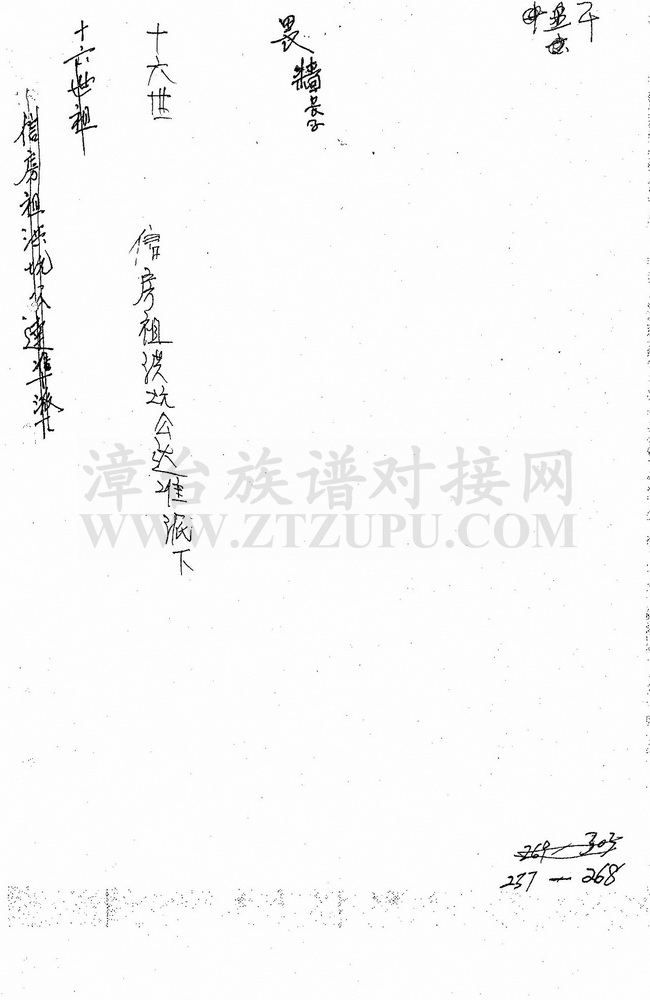 畏 墻長子
十六世
信房祖洪坑公達准派下
十六世祖
信房祖洪坑公達准派下
269 — 303
237 — 268
漳台族谱对接网
WWW.ZTZUPU.COM